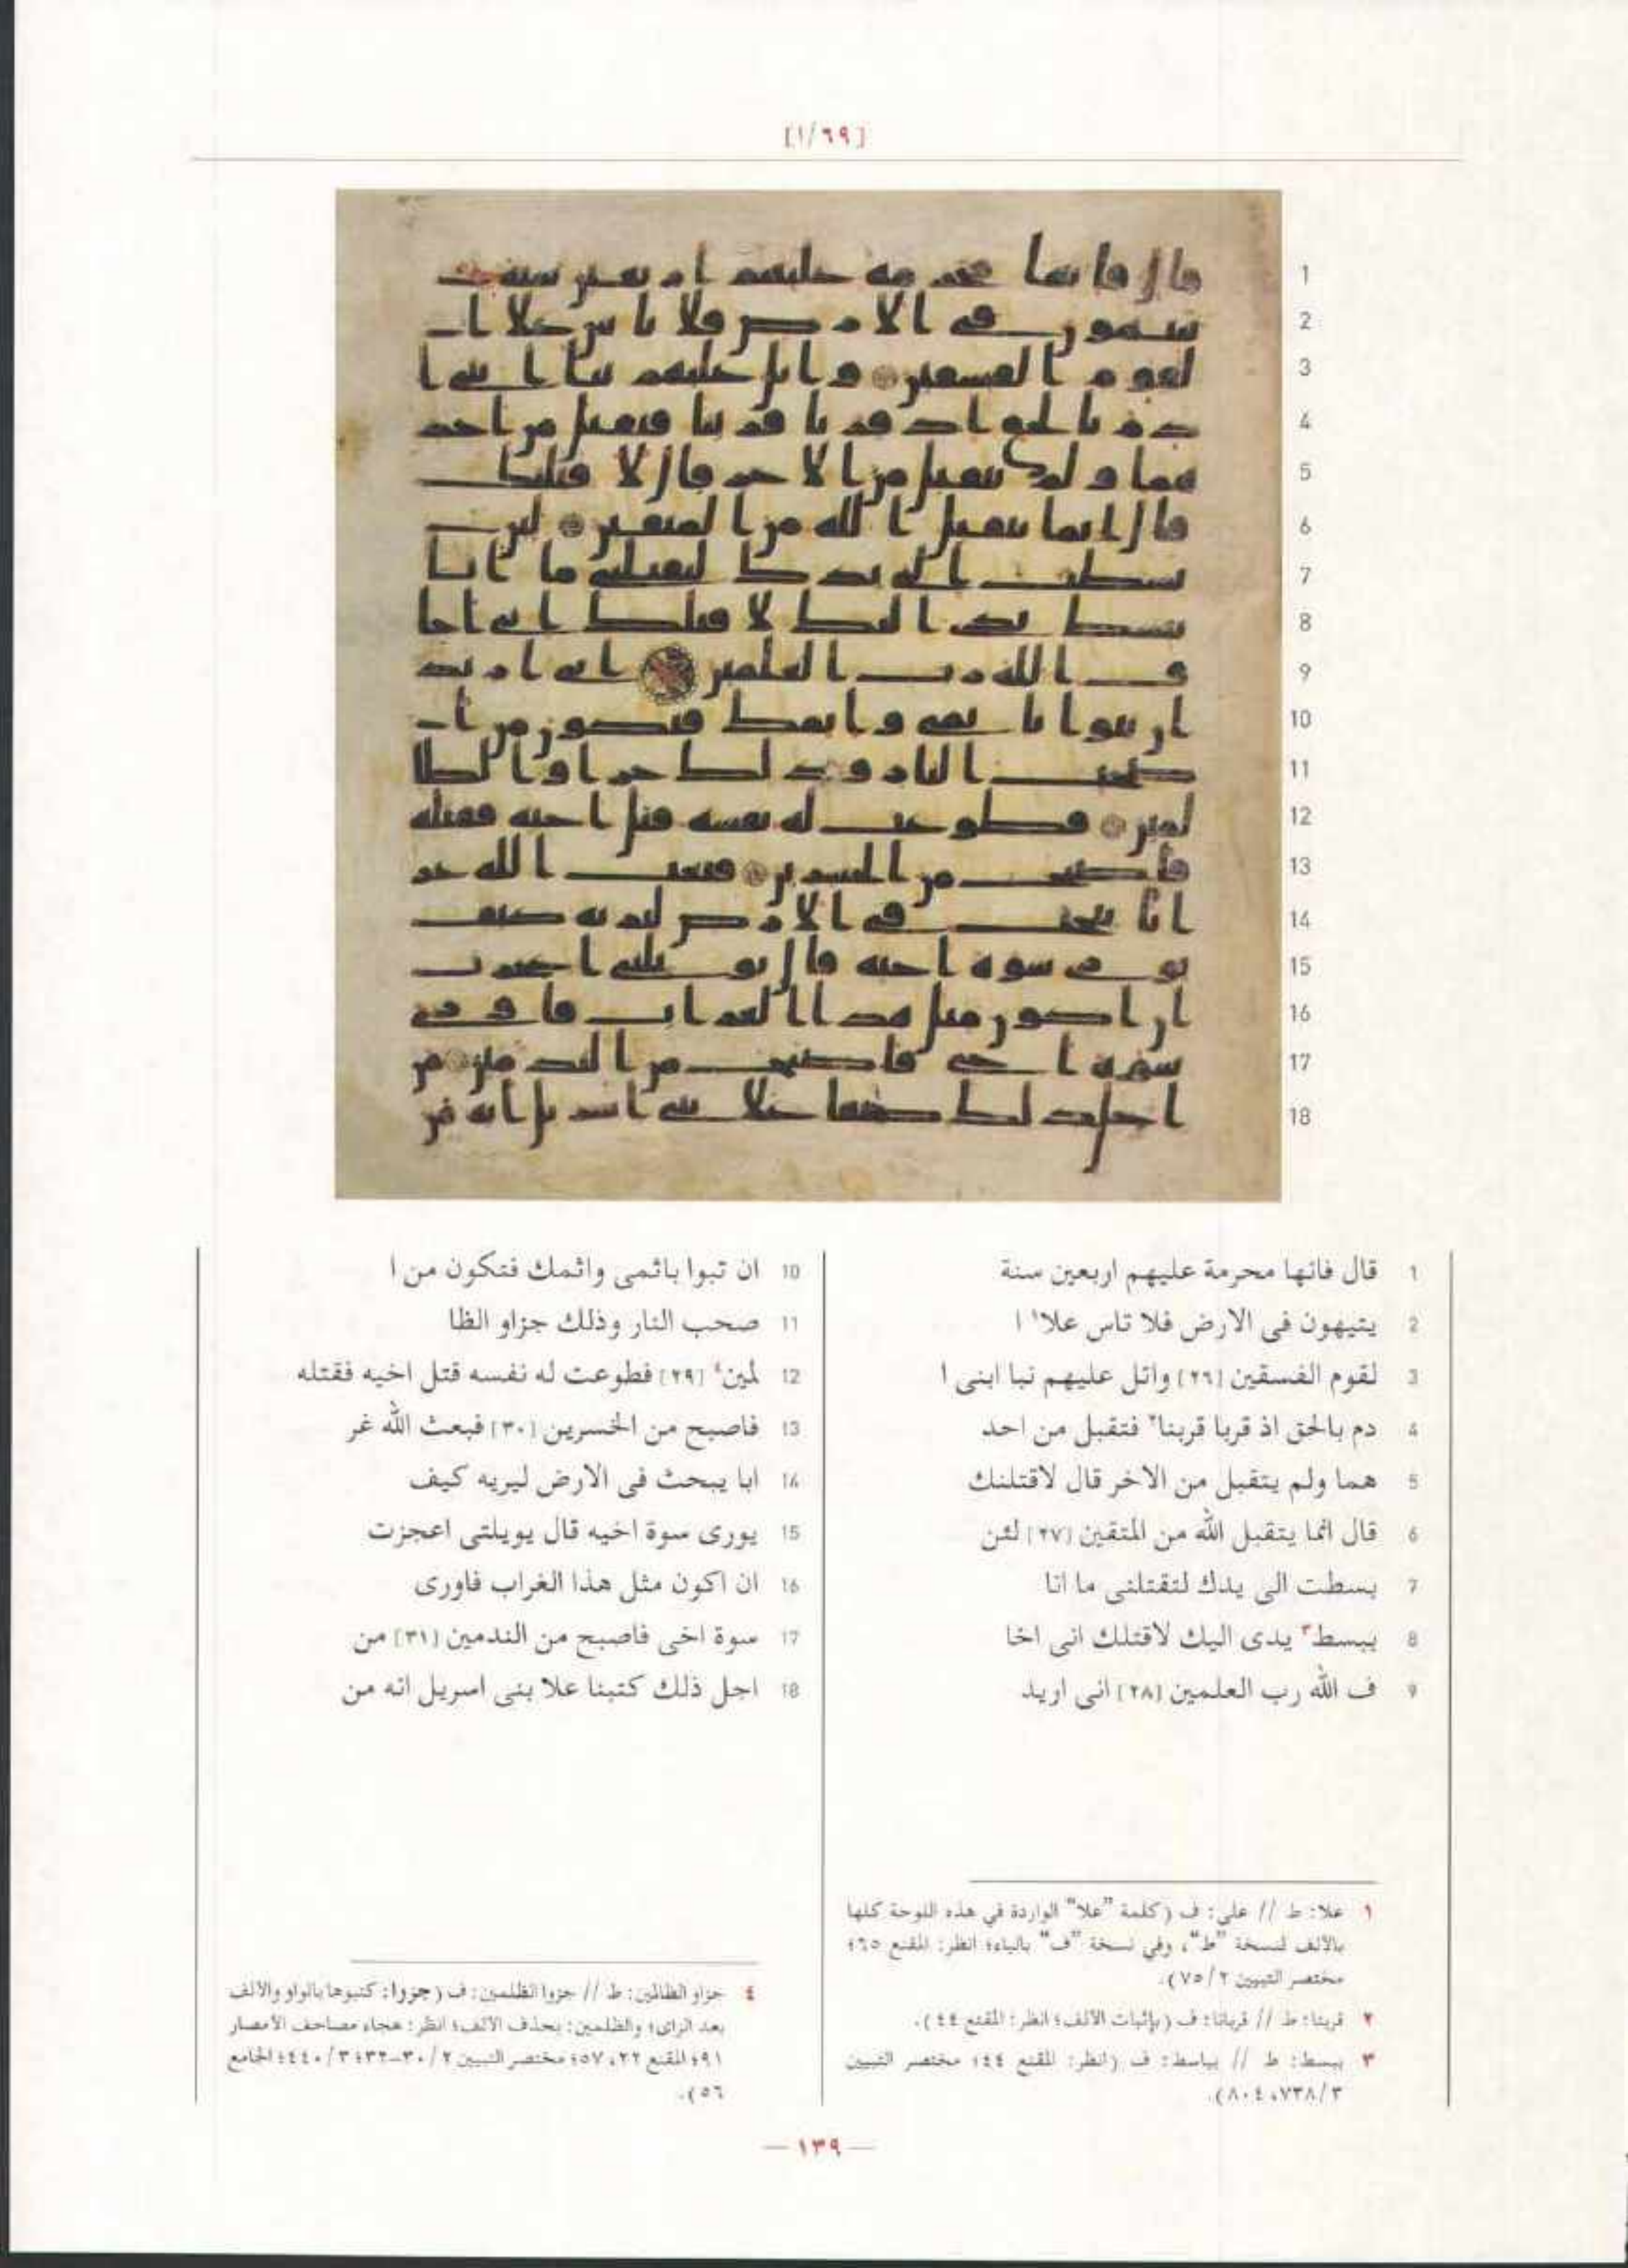 [١/٦٩]
1
2
3
4
5
6
7
8
9
10
11
12
13
14
15
16
17
18
1 قال فانها محرمة عليهم اربعين سنة
2 يتيهون فى الارض فلا تاس علا١ ا
3 لقوم الفسقين [٢٦] واتل عليهم نبا ابنى ا
4 دم بالحق اذ قربا قربنا٢ فتقبل من احد
5 هما ولم يتقبل من الاخر قال لاقتلنك
6 قال انما يتقبل الله من المتقين [٢٧] لئن
7 بسطت الى يدك لتقتلنى ما انا
8 ببسط٣ يدى اليك لاقتلك انى اخا
9 ف الله رب العلمين [٢٨] انى اريد
10 ان تبوا باثمى واثمك فتكون من ا
11 صحب النار وذلك جزاو الظا
12 لمين٤ [٢٩] فطوعت له نفسه قتل اخيه فقتله
13 فاصبح من الخسرين [٣٠] فبعث الله غر
14 ابا يبحث فى الارض ليريه كيف
15 يورى سوة اخيه قال يويلتى اعجزت
16 ان اكون مثل هذا الغراب فاورى
17 سوة اخى فاصبح من الندمين [٣١] من
18 اجل ذلك كتبنا علا بنى اسريل انه من
١ علا: ط // على: ف (كلمة "علا" الواردة في هذه اللوحة كلها
بالألف لنسخة "ط"، وفي نسخة "ف" بالياء؛ انظر: المقنع ٦٥؛
مختصر التبيين ٧٥/٢).
٢ قربنا: ط // قربانا: ف (بإثبات الألف؛ انظر: المقنع ٤٤).
٣ ببسط: ط // بباسط: ف (انظر: المقنع ٤٤؛ مختصر التبيين
٧٣٨/٣، ٨٠٤).
٤ جزاو الظالمين: ط // جزوا الظلمين: ف (جزوا: كتبوها بالواو والألف
بعد الزاى؛ والظلمين: بحذف الألف؛ انظر: هجاء مصاحف الأمصار
٩١؛ المقنع ٢٢، ٥٧؛ مختصر التبيين ٣٠/٢-٣٢؛ ٤٤٠/٣؛ الجامع
٥٦).
— ١٣٩ —